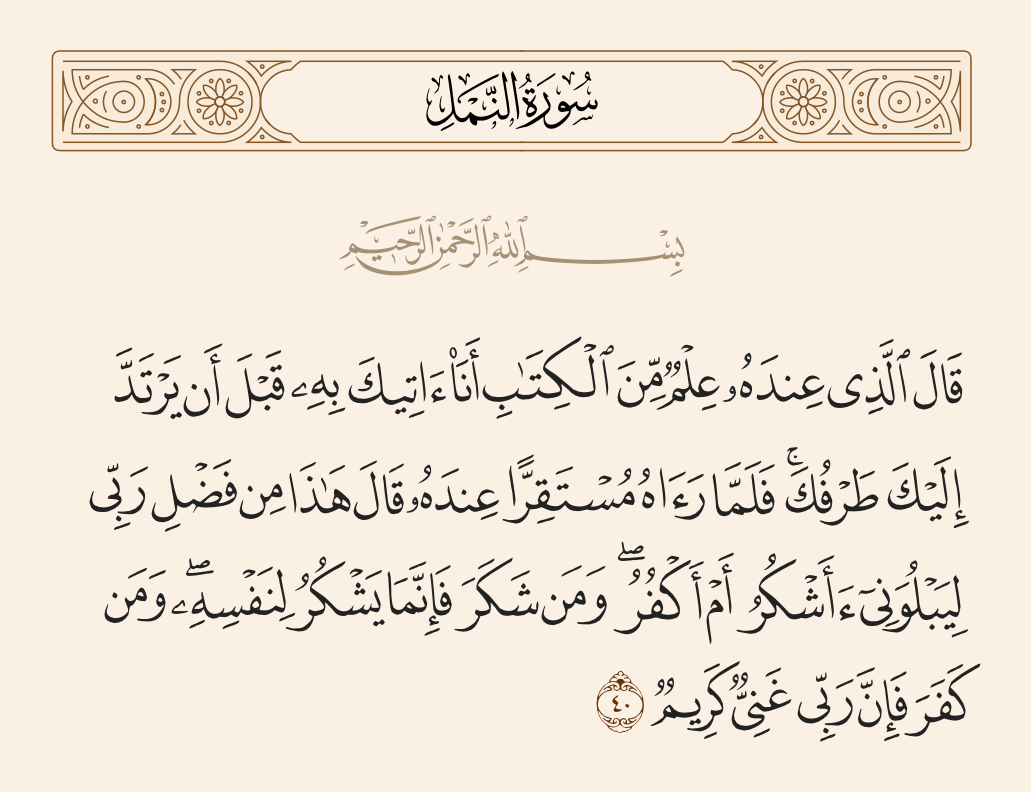 سُورَةُ النَّمْلِ
بِسْمِ ٱللَّهِ ٱلرَّحْمَٰنِ ٱلرَّحِيمِ
قَالَ ٱلَّذِى عِندَهُۥ عِلْمٌ مِّنَ ٱلْكِتَٰبِ أَنَا۠ ءَاتِيكَ بِهِۦ قَبْلَ أَن يَرْتَدَّ
إِلَيْكَ طَرْفُكَ ۚ فَلَمَّا رَءَاهُ مُسْتَقِرًّا عِندَهُۥ قَالَ هَٰذَا مِن فَضْلِ رَبِّى
لِيَبْلُوَنِىٓ ءَأَشْكُرُ أَمْ أَكْفُرُ ۖ وَمَن شَكَرَ فَإِنَّمَا يَشْكُرُ لِنَفْسِهِۦ ۖ وَمَن
كَفَرَ فَإِنَّ رَبِّى غَنِىٌّ كَرِيمٌ ٤٠